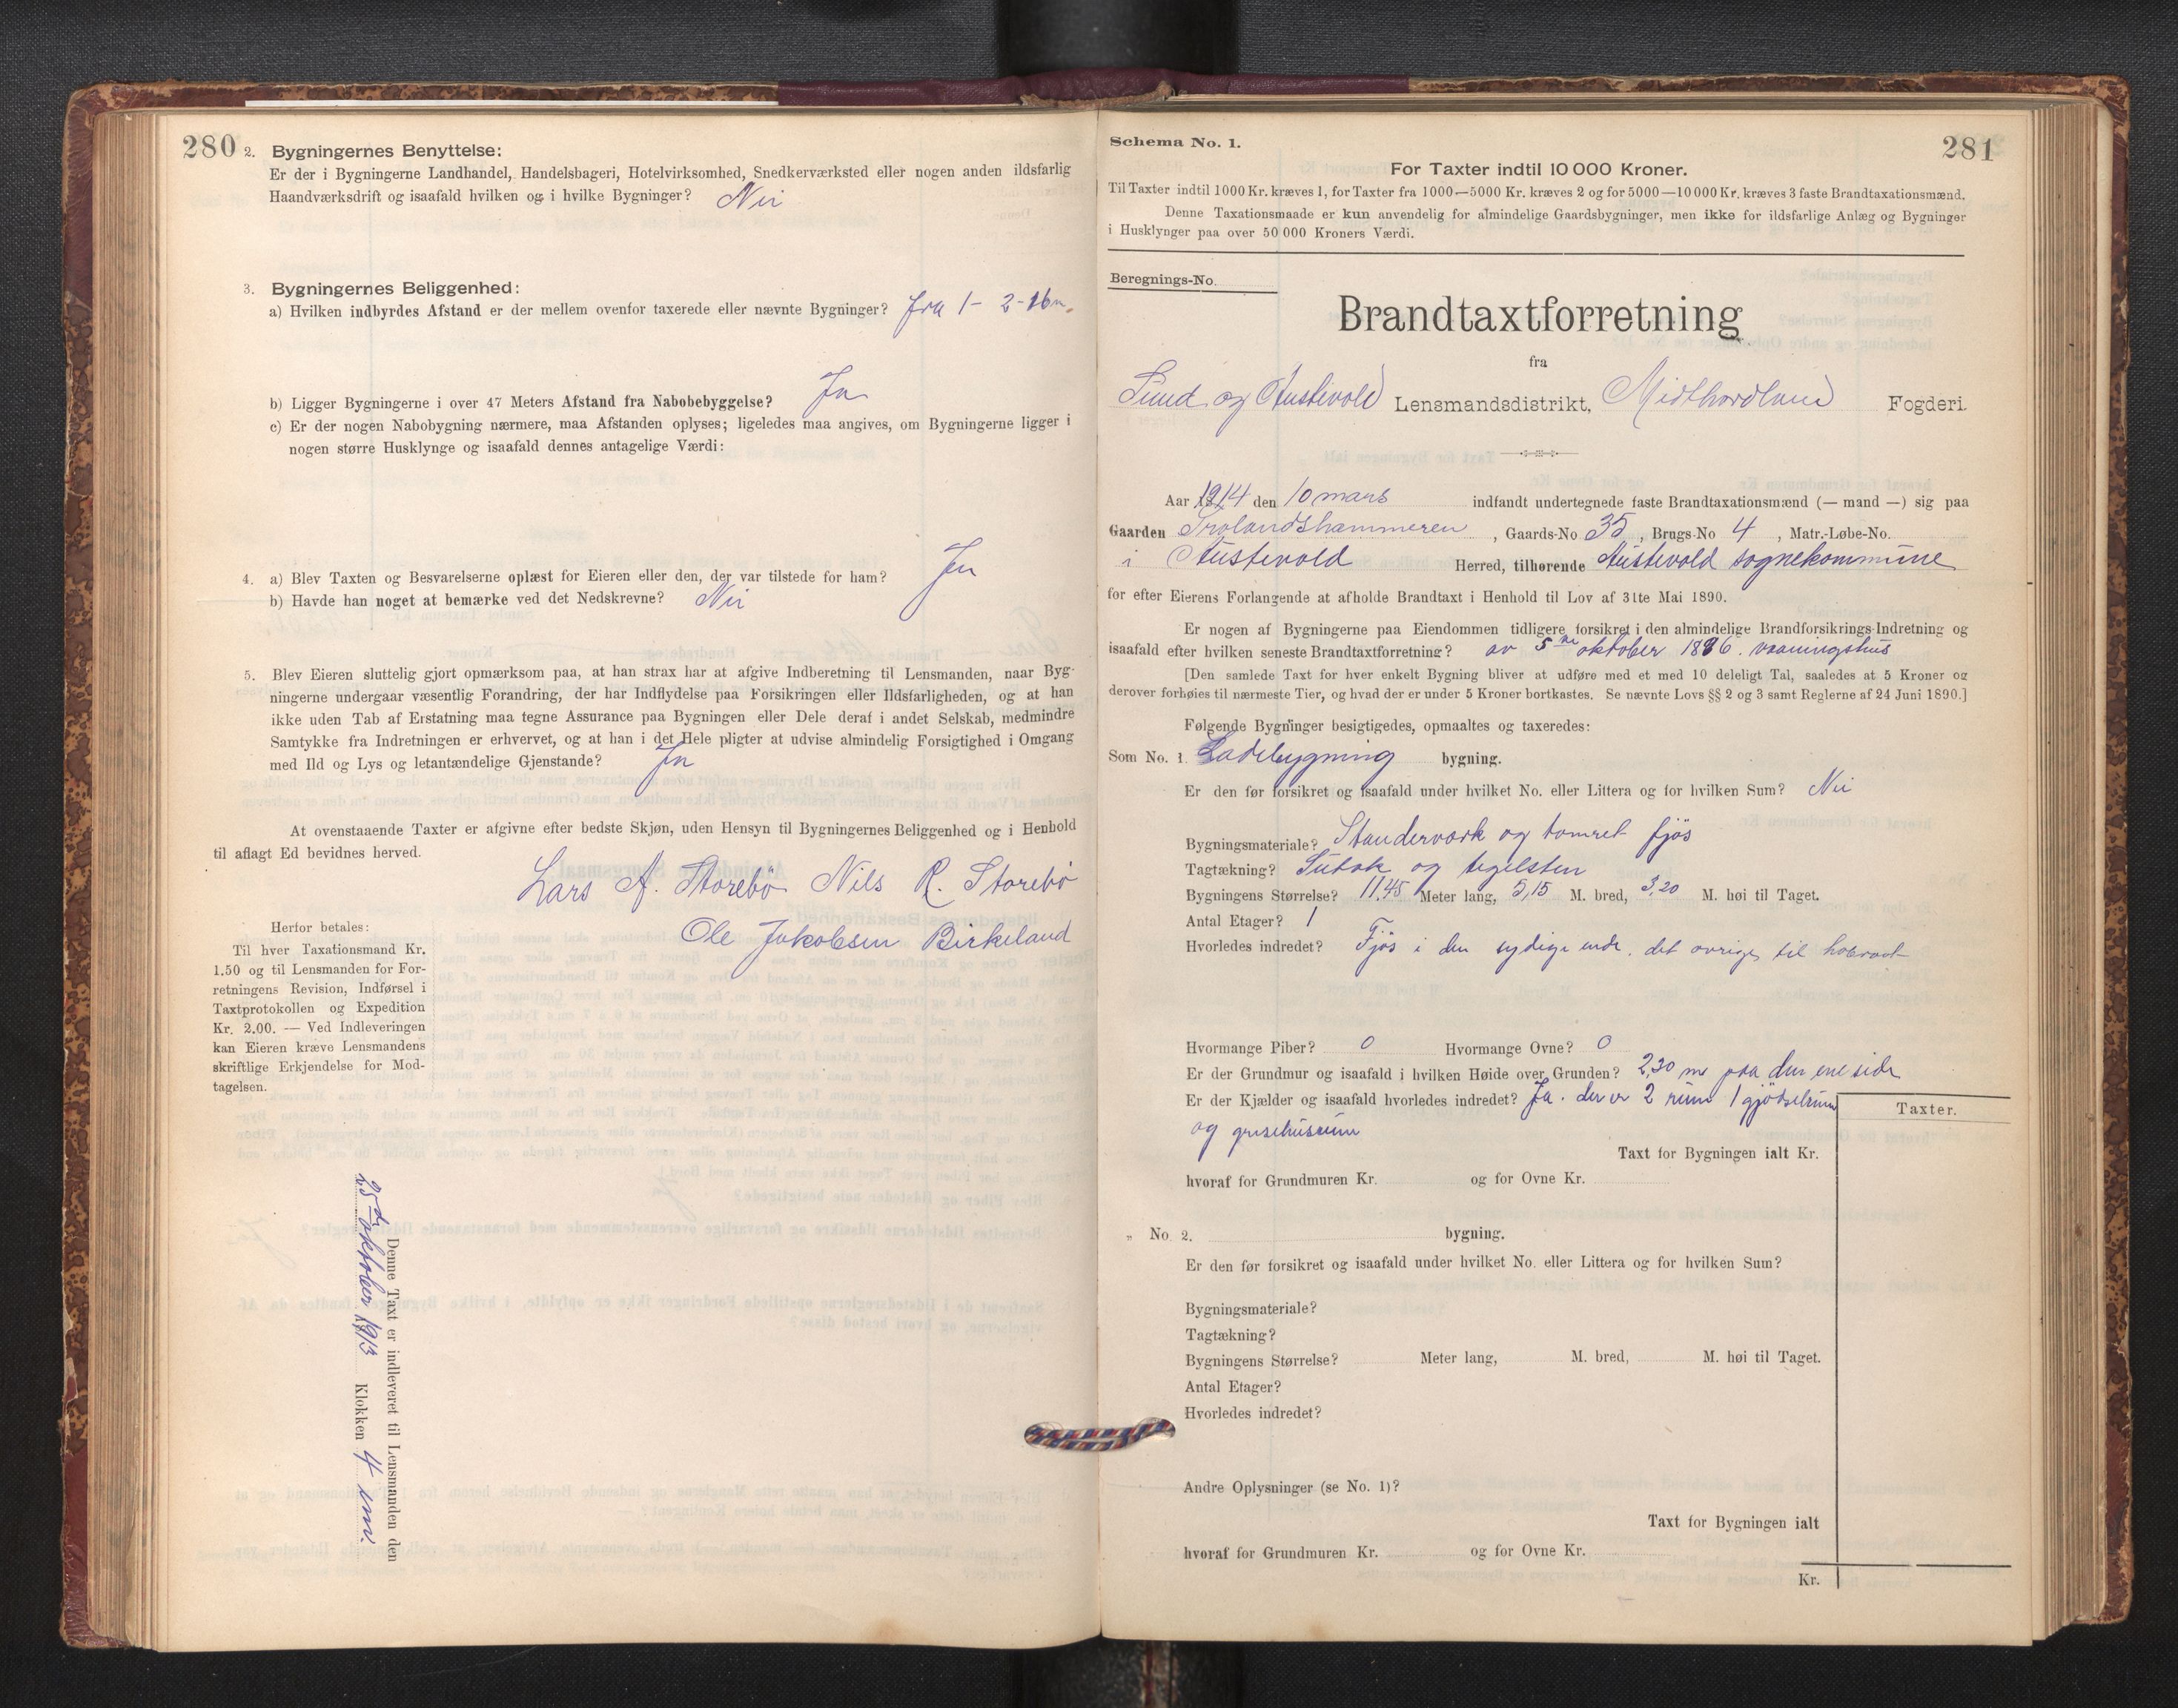 280
2. Bygningernes Benyttelse:
Er der i Bygningerne Landhandel, Handelsbageri, Hotelvirksomhed, Snedkerværksted eller nogen anden ildsfarlig
Haandværksdrift og isaafald hvilken og i hvilke Bygninger? Nei
3. Bygningernes Beliggenhed:
a) Hvilken indbyrdes Afstand er der mellem ovenfor taxerede eller nævnte Bygninger? fra 1 - 2 - 16 m.
b) Ligger Bygningerne i over 47 Meters Afstand fra Nabobebyggelse? Ja
c) Er der nogen Nabobygning nærmere, maa Afstanden oplyses; ligeledes maa angives, om Bygningerne ligger i
nogen større Husklynge og isaafald dennes antagelige Værdi:
4. a) Blev Taxten og Besvarelserne oplæst for Eieren eller den, der var tilstede for ham? Ja
b) Havde han noget at bemærke ved det Nedskrevne? Nei
5. Blev Eieren sluttelig gjort opmærksom paa, at han strax har at afgive Indberetning til Lensmanden, naar Byg-
ningerne undergaar væsentlig Forandring, der har Indflydelse paa Forsikringen eller Ildsfarligheden, og at han
ikke uden Tab af Erstatning maa tegne Assurance paa Bygningen eller Dele deraf i andet Selskab, medmindre
Samtykke fra Indretningen er erhvervet, og at han i det Hele pligter at udvise almindelig Forsigtighed i Omgang
med Ild og Lys og letantændelige Gjenstande? Ja
At ovenstaaende Taxter er afgivne efter bedste Skjøn, uden Hensyn til Bygningernes Beliggenhed og i Henhold
til aflagt Ed bevidnes herved.
Lars A. Storebö Nils R. Storebö
Ole Jakobsen Birkeland
Herfor betales:
Til hver Taxationsmand Kr.
1.50 og til Lensmanden for For-
retningens Revision, Indførsel i
Taxtprotokollen og Expedition
Kr. 2.00. — Ved Indleveringen
kan Eieren kræve Lensmandens
skriftlige Erkjendelse for Mod-
tagelsen.
Denne Taxt er indleveret til Lensmanden den
25de oktober 1913 Klokken 4 em.
Schema No. 1.
281
For Taxter indtil 10 000 Kroner.
Til Taxter indtil 1000 Kr. kræves 1, for Taxter fra 1000—5000 Kr. kræves 2 og for 5000—10000 Kr. kræves 3 faste Brandtaxationsmænd.
Denne Taxationsmaade er kun anvendelig for almindelige Gaardsbygninger, men ikke for ildsfarlige Anlæg og Bygninger
i Husklynger paa over 50 000 Kroners Værdi.
Beregnings-No.
Brandtaxtforretning
fra
Sund og Austevold Lensmandsdistrikt, Midthordland Fogderi.
Aar 1914 den 10 mars indfandt undertegnede faste Brandtaxationsmænd (— mand —) sig paa
Gaarden Trolandshammeren, Gaards-No 35, Brugs-No 4, Matr.-Løbe-No.
i Austevold Herred, tilhørende Austevold sognekommune
for efter Eierens Forlangende at afholde Brandtaxt i Henhold til Lov af 31te Mai 1890.
Er nogen af Bygningerne paa Eiendommen tidligere forsikret i den almindelige Brandforsikrings-Indretning og
isaafald efter hvilken seneste Brandtaxtforretning? av 5te oktober 1886. vaaningshus
[Den samlede Taxt for hver enkelt Bygning bliver at udføre med et med 10 deleligt Tal, saaledes at 5 Kroner og
derover forhøies til nærmeste Tier, og hvad der er under 5 Kroner bortkastes. Se nævnte Lovs §§ 2 og 3 samt Reglerne af 24 Juni 1890.]
Følgende Bygninger besigtigedes, opmaaltes og taxeredes:
Som No. 1. Ladebygning bygning.
Er den før forsikret og isaafald under hvilket No. eller Littera og for hvilken Sum? Nei
Bygningsmateriale? Standerverk og tomret fjös
Tagtækning? Sutak og tegelsten
Bygningens Størrelse? 11,45 Meter lang, 5,15 M. bred, 3,20 M. høi til Taget.
Antal Etager? 1
Hvorledes indredet? Fjös i den sydige ende. det ovrige til
Hvormange Piber? 0 Hvormange Ovne? 0
Er der Grundmur og isaafald i hvilken Høide over Grunden? 2,30 m paa den ene side
Er der Kjælder og isaafald hvorledes indredet? Ja. der er 2 rum 1 gjödselrum
og grisehusrum
Taxter.
Taxt for Bygningen ialt Kr.
hvoraf for Grundmuren Kr. og for Ovne Kr.
„ No. 2. bygning.
Er den før forsikret og isaafald under hvilket No. eller Littera og for hvilken Sum?
Bygningsmateriale?
Tagtækning?
Bygningens Størrelse? Meter lang, M. bred, M. høi til Taget.
Antal Etager?
Hvorledes indredet?
Andre Oplysninger (se No. 1)?
Taxt for Bygningen ialt
hvoraf for Grundmuren Kr. og for Ovne Kr.
Kr.